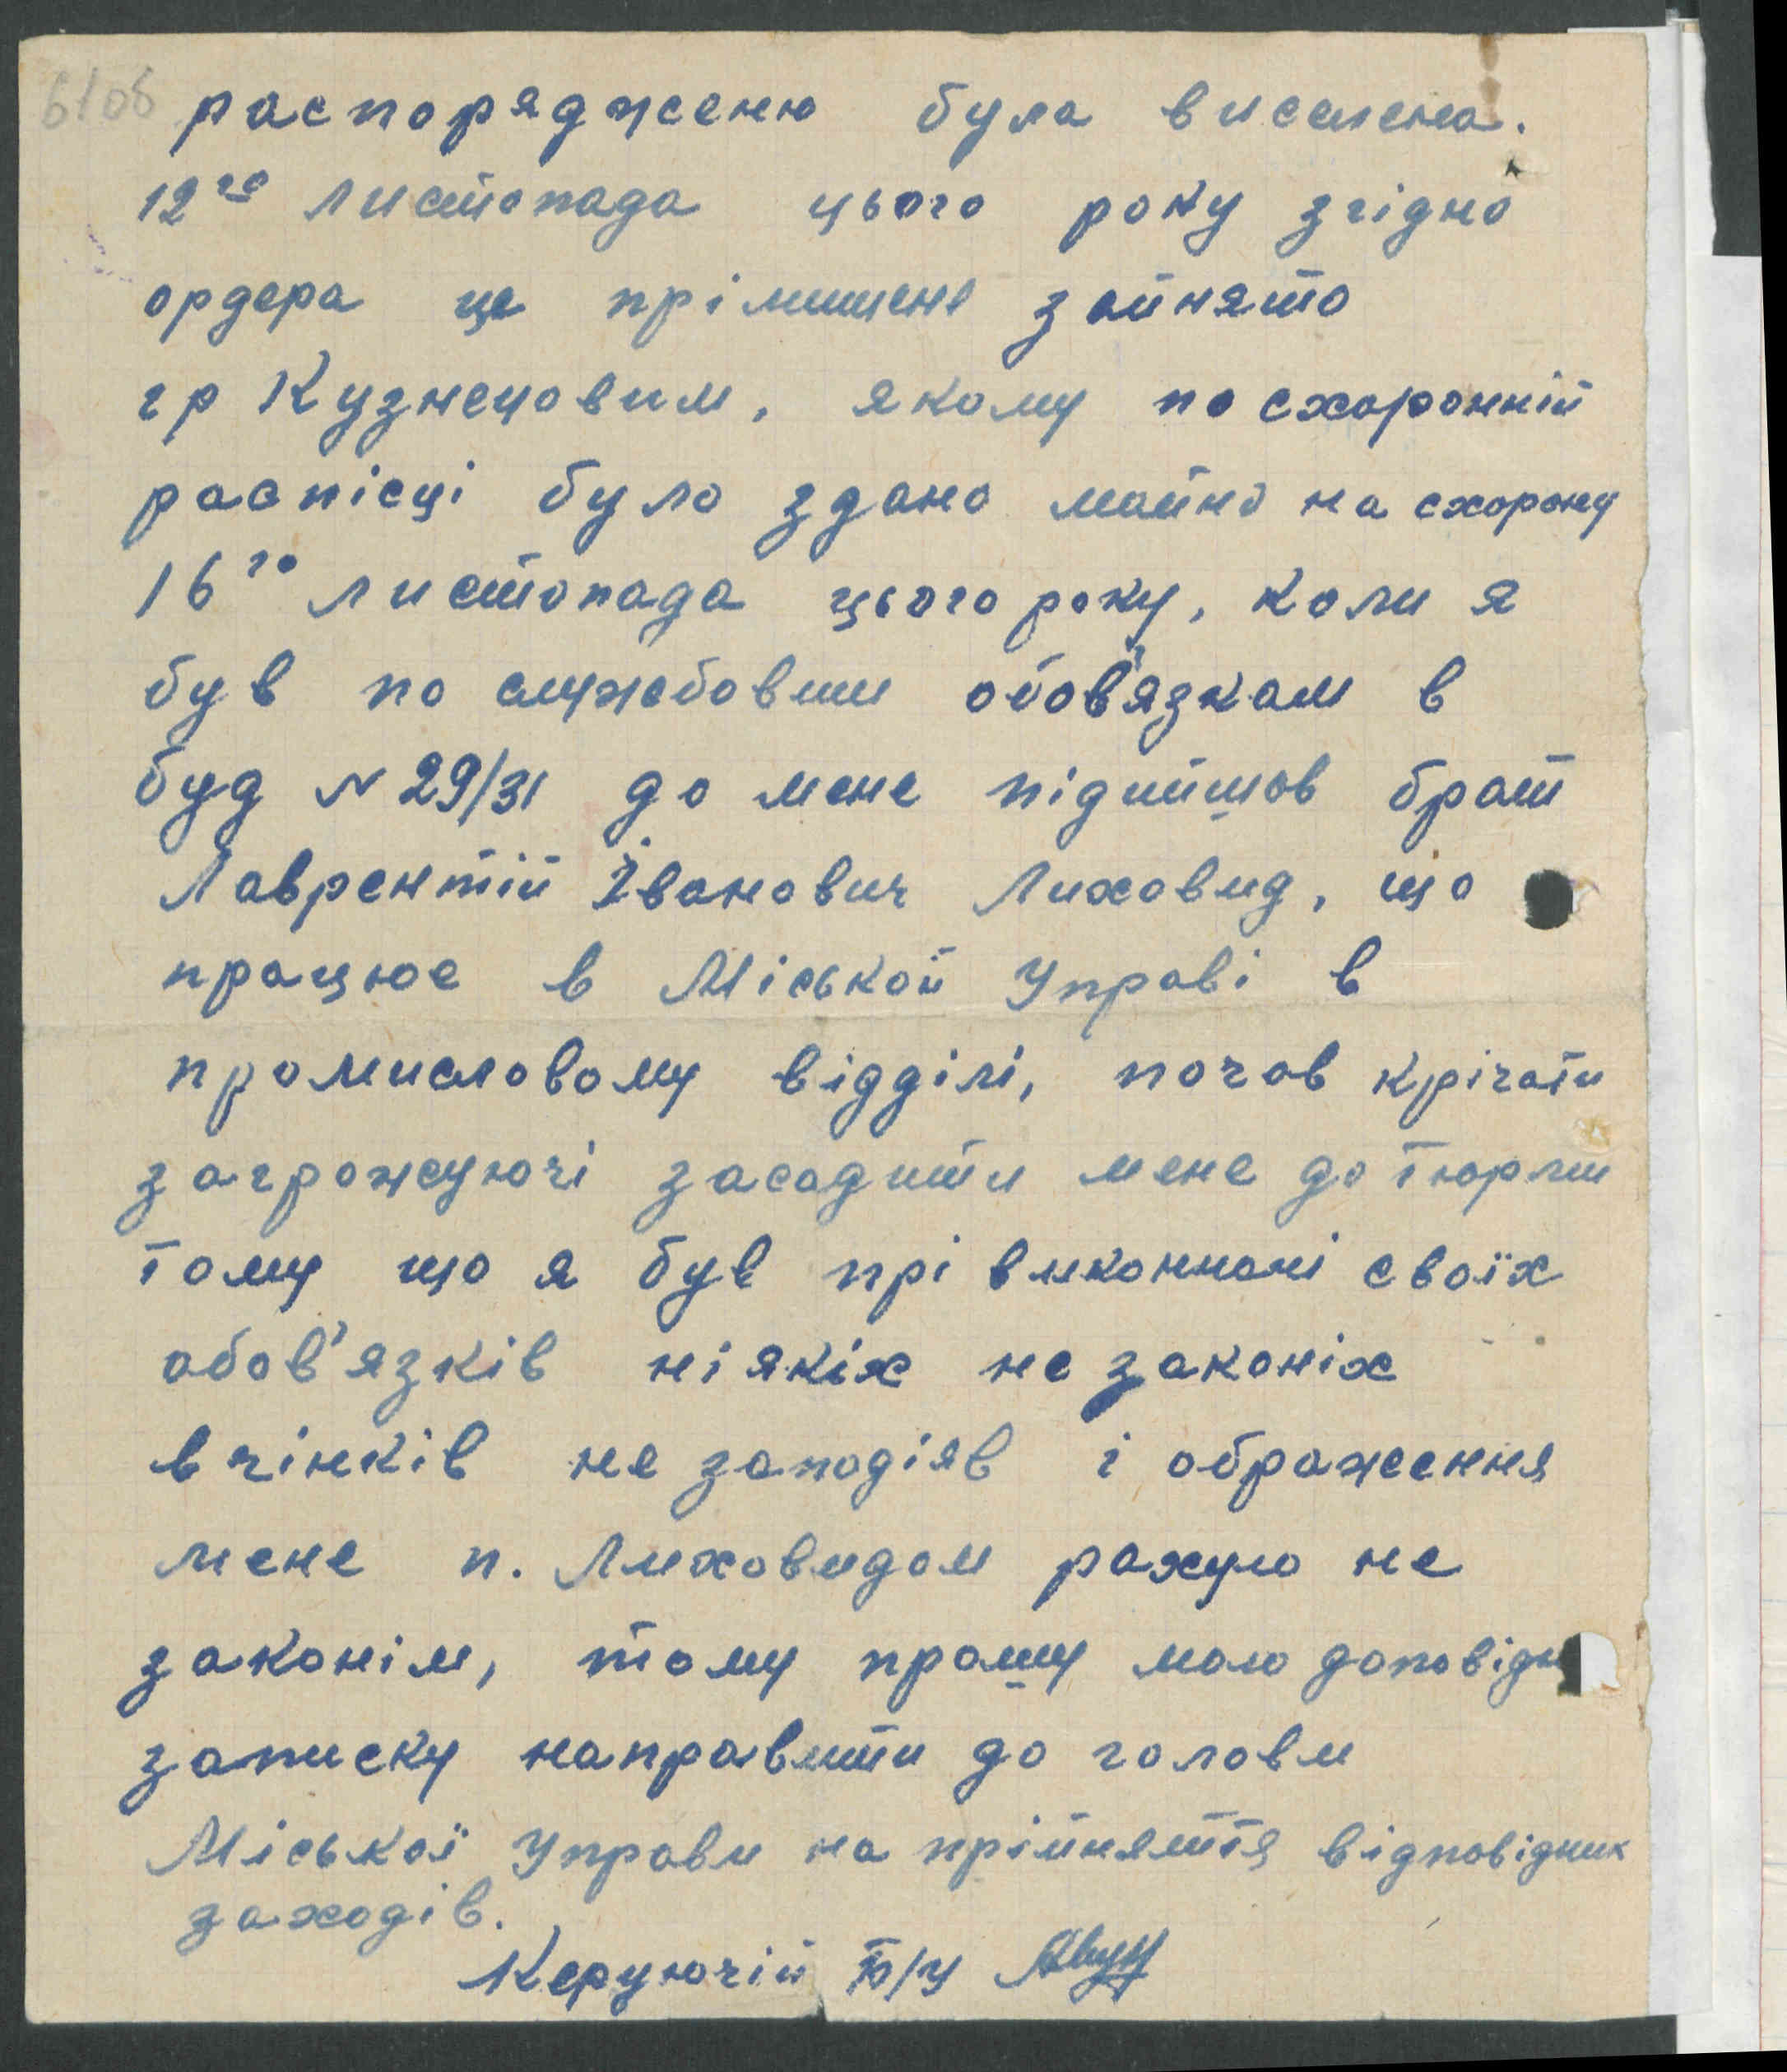 распорядженю була виселена.
12го листопада цього року згідно
ордера це прімищене зайнято
гр Кузнецовим, якому по схоронній
распісці було здано майно на схорону
16го листопада цього року, коли я
був по службовим обов'язкам в
буд N 29/31 до мене підийшов брат
Лаврентій Іванович Лиховид, що
працює в Міськой Управі в
промисловому відділі, почав крічати
загрожуючі засадити мене до тюрми
тому що я був прі виконнані своїх
обов'язків ні якіх не законіх
вчінків не заподіяв і ображення
мене п. Лиховидом рахую не
законім, тому прошу мою доповідн
записку направити до голови
Міської Управи на прійняття відповідних
заходів.
Керуючій Б/У